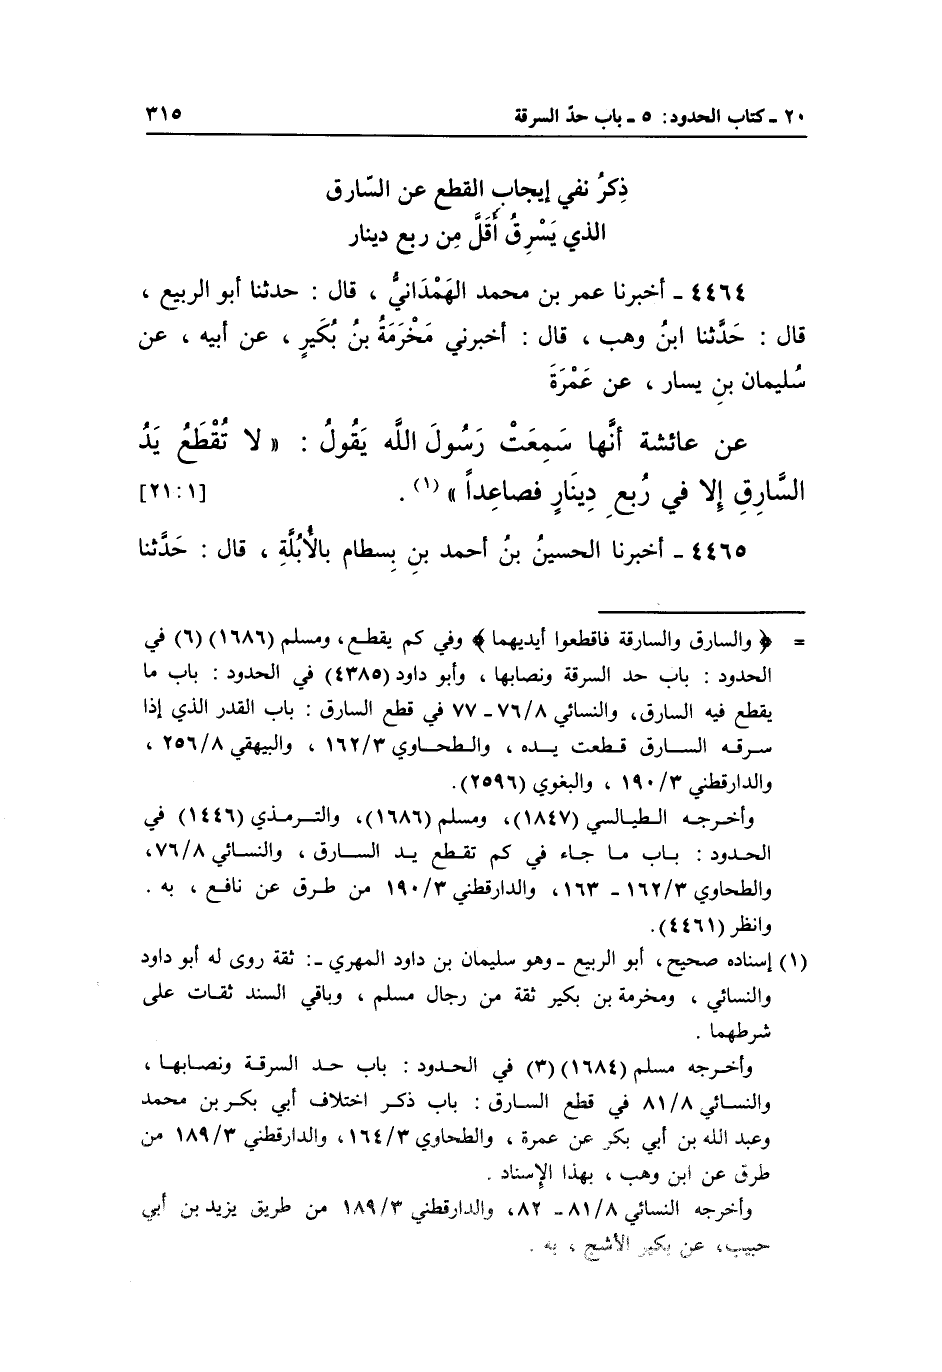 ٢٠ ـ كتاب الحدود: ٥ ـ باب حدّ السرقة ٣١٥
ذِكرُ نفي إيجاب القطع عن السّارق
الذي يَسْرِقُ أقَلَّ مِن ربع دينار
٤٤٦٤ ـ أخبرنا عمر بن محمد الهَمْدَانيُّ ، قال : حدثنا أبو الربيع ،
قال : حَدَّثنا ابنُ وهب ، قال : أخبرني مَخْرَمَةُ بنُ بُكَيرٍ ، عن أبيه ، عن
سُليمان بنِ يسار ، عن عَمْرَةَ
عن عائشة أنَّها سَمِعَتْ رَسُولَ اللَّه يَقُولُ : « لا تُقْطَعُ يَدُ
السَّارِقِ إلا في رُبعِ دِينَارٍ فصاعِداً » (١) . [١ : ٢١]
٤٤٦٥ ـ أخبرنا الحسينُ بنُ أحمد بنِ بِسطام بالأُبُلَّةِ ، قال : حَدَّثنا
= ﴿ والسارق والسارقة فاقطعوا أيديهما ﴾ وفي كم يقطع، ومسلم (١٦٨٦) (٦) في
الحدود : باب حد السرقة ونصابها ، وأبو داود (٤٣٨٥) في الحدود : باب ما
يقطع فيه السارق، والنسائي ٧٦/٨ ـ ٧٧ في قطع السارق : باب القدر الذي إذا
سرقه السارق قطعت يده ، والطحاوي ١٦٢/٣ ، والبيهقي ٢٥٦/٨ ،
والدارقطني ١٩٠/٣ ، والبغوي (٢٥٩٦).
وأخرجه الطيالسي (١٨٤٧)، ومسلم (١٦٨٦)، والترمذي (١٤٤٦) في
الحدود : باب ما جاء في كم تقطع يد السارق ، والنسائي ٧٦/٨،
والطحاوي ١٦٢/٣ ـ ١٦٣، والدارقطني ١٩٠/٣ من طرق عن نافع ، به .
وانظر (٤٤٦١).
(١) إسناده صحيح، أبو الربيع ـ وهو سليمان بن داود المهري ـ: ثقة روى له أبو داود
والنسائي ، ومخرمة بن بكير ثقة من رجال مسلم ، وباقي السند ثقات على
شرطهما .
وأخرجه مسلم (١٦٨٤) (٣) في الحدود : باب حد السرقة ونصابها ،
والنسائي ٨١/٨ في قطع السارق : باب ذكر اختلاف أبي بكر بن محمد
وعبد الله بن أبي بكر عن عمرة ، والطحاوي ١٦٤/٣، والدارقطني ١٨٩/٣ من
طرق عن ابن وهب ، بهذا الإسناد .
وأخرجه النسائي ٨١/٨ ـ ٨٢، والدارقطني ١٨٩/٣ من طريق يزيد بن أبي
حبيب، عن بكير الأشج ، به .